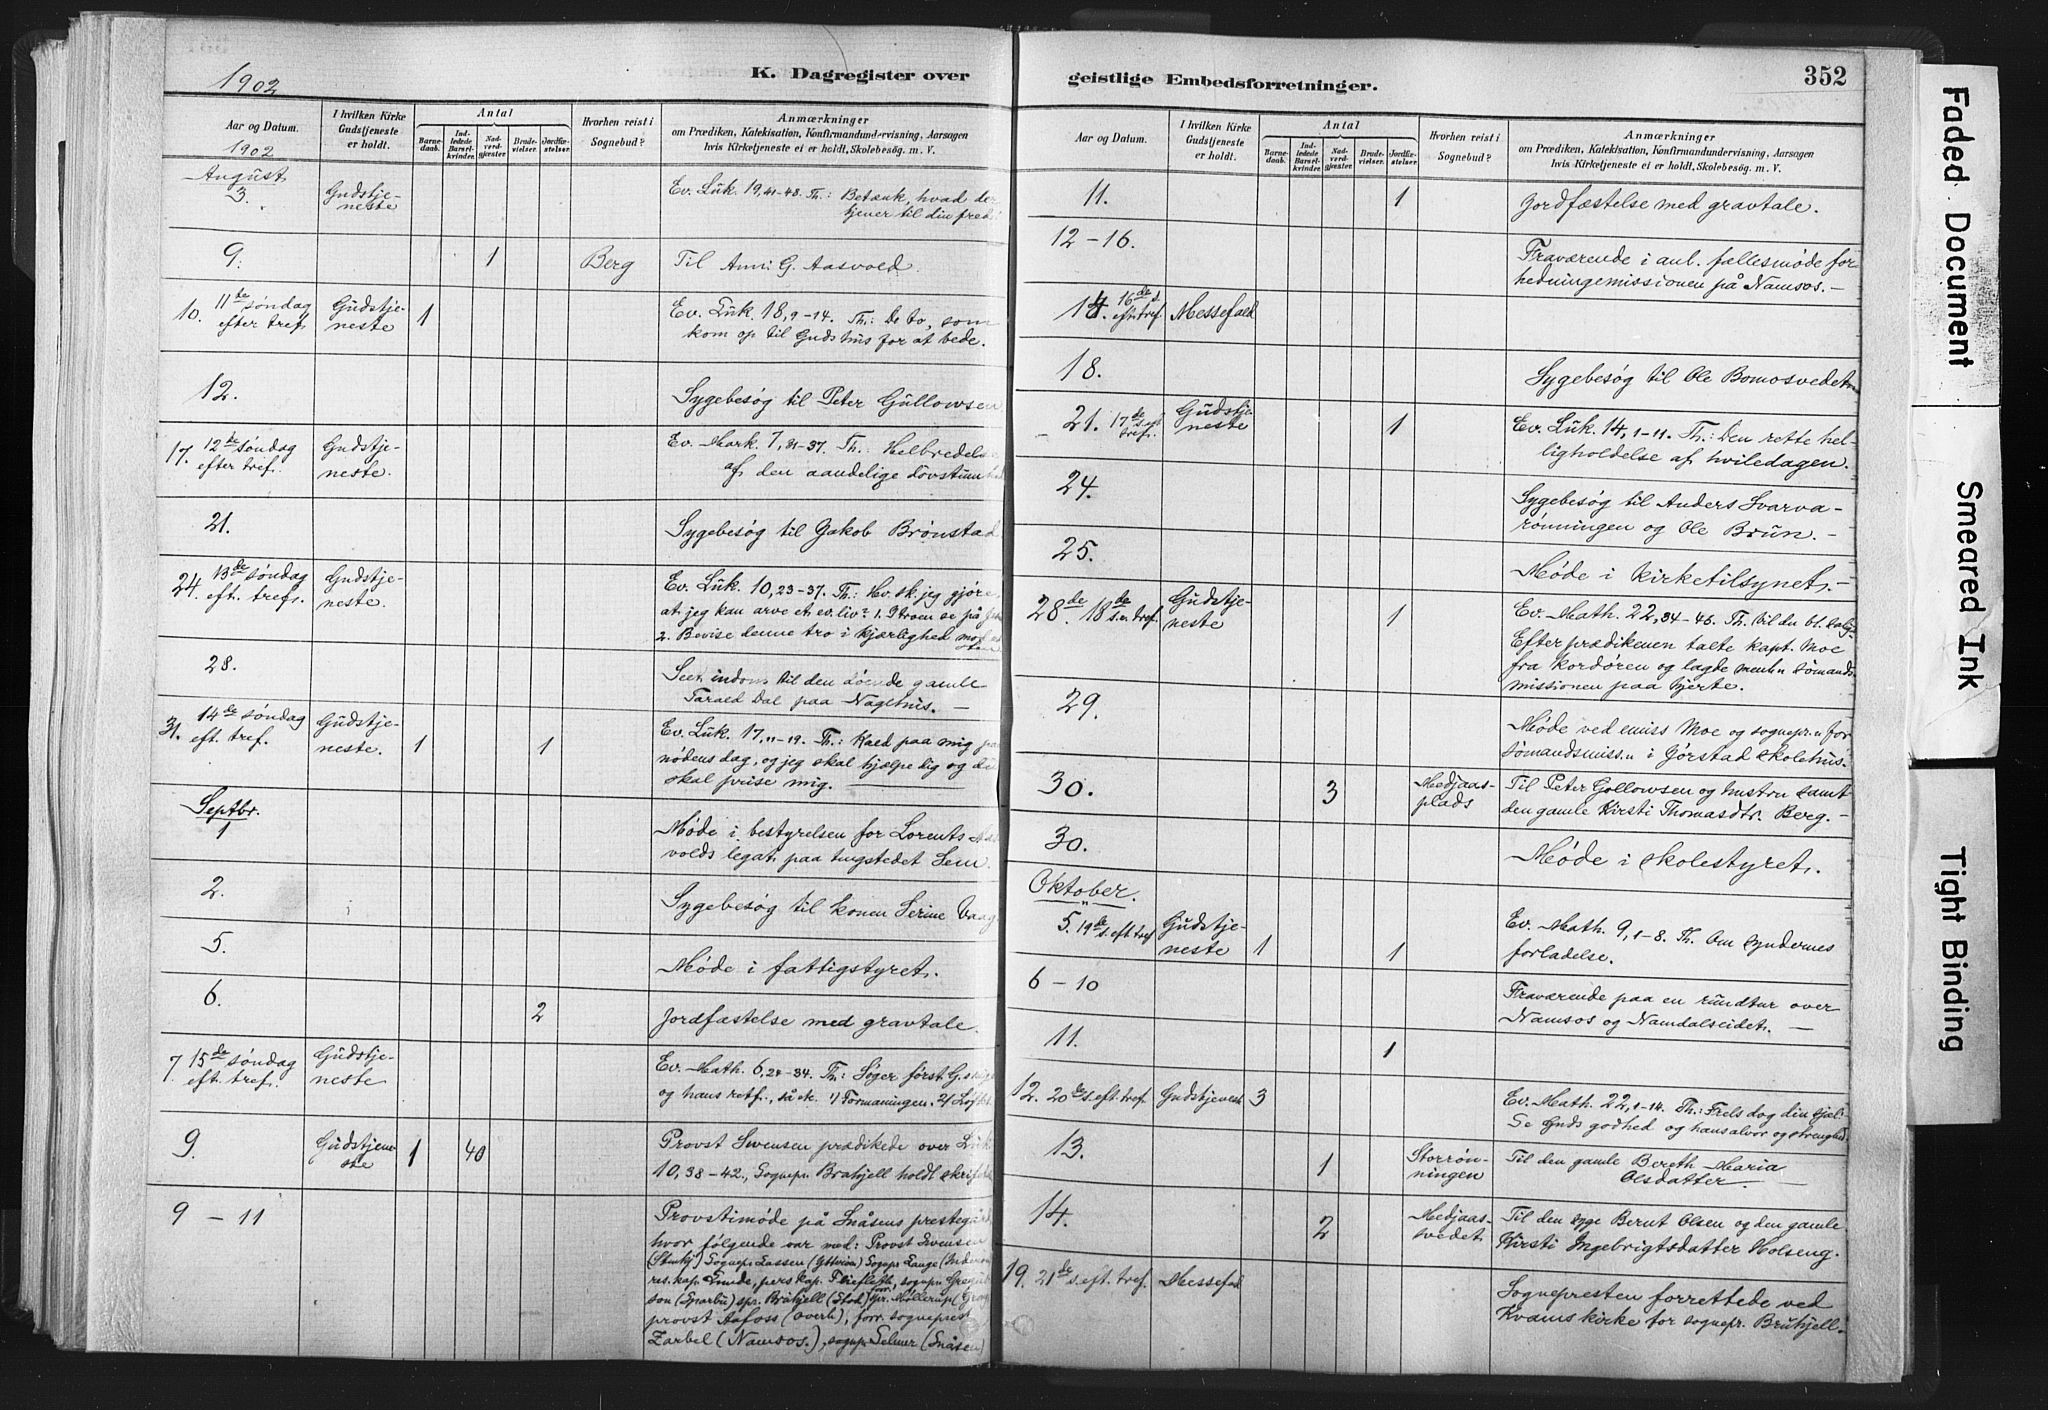 1902
K. Dagregister over
Aar og Datum.
I hvilken Kirke Gudstjeneste er holdt.
Antal
Barnedaab.
Indledede Barselkvinder.
Nadverdgjæster.
Brudevielser.
Jordfæstelser.
Hvorhen reist i Sognebud?
Anmærkninger
om Prædiken, Katekisation, Konfirmandundervisning, Aarsagen
hvis Kirketjeneste ei er holdt, Skolebesøg. m. V.
1902
August
3. Gudstje-
neste
Ev. Luk. 19,41-48. Th.: Betænk, hvad der
tjener til din fred
9. 1 Berg Til Anna G. Aasvold.
10. 11de søndag
efter tref. Gudstje-
neste 1
Ev. Luk. 18,9-14. Th.: De to, som
kom op til Guds hus for at bede.
12. Sygebesøg til Peter Gullowsen
17. 12de søndag
efter tref. Gudstje-
neste.
Ev. Mark. 7,31-37. Th.: Helbredelsen
af den aandelige døvstumhed
21. Sygebesøg til Jakob Brønstad
24. 13de søndag
eft. tref. Gudstje-
neste.
Ev. Luk. 10,23-37. Th.: Hv. sk. jeg gjøre,
at jeg kan arve et ev. liv? 1. I troen se på
2. Bevise denne tro i kjærlighed mod
28. indom til den døende gamle
Tarald Dal paa Nagelhus. —
31. 14de søndag
eft. tref. Gudstje-
neste. 1 1
Ev. Luk. 17,11-19. Th.: Kald paa mig paa
nødens dag, og jeg skal hjælpe dig og du
skal prise mig.
Septbr.
1 Møde i bestyrelsen for Lorents Aas-
volds legat paa tingstedet Sem.
2. Sygebesøg til konen Serine Vaag
5. Møde i fattigstyret.
6. 2 Jordfæstelse med gravtale.
7. 15de søndag
eft. tref. Gudstje-
neste
Ev. Math. 6,24-34. Th.: Søger først G.s rige
og hans retf., så etc. 1) Formaningen. 2) Løftet.
9. Gudstjene-
ste 1 40
Provst Svensen prædikede over Luk.
10,38-42. Sognepr. Bruhjell holdt skrift
9 - 11 Provstimøde på Snåsens prestegård,
hvor følgende var med: Provst Svensen
Sognepr. Lassen (Ytterøen) Sognepr. Lange
res. kap. pers. kap. sognepr.
son (Sparbu) spr. Bruhjell (Stod) spr. Møllerup
provst Aafoss (Overh.), forr. sogneprest
Zarbel (Namsos.), sognepr. Selmer (Snåsen)
geistlige Embedsforretninger.
352
Aar og Datum.
I hvilken Kirke Gudstjeneste er holdt.
Antal
Barnedaab.
Indledede Barselkvinder.
Nadverdgjæster.
Brudevielser.
Jordfæstelser.
Hvorhen reist i Sognebud?
Anmærkninger
om Prædiken, Katekisation, Konfirmandundervisning, Aarsagen
hvis Kirketjeneste ei er holdt, Skolebesøg. m. V.
11. 1 Jordfæstelse med gravtale.
12-16. Fraværende i anl. fællesmøde for
hedningemissionen på Namsos. —
14. 16de s.
eft. tref. Messefald
18. Sygebesøg til Ole Bomosvedet
21. 17de s. eft.
tref. Gudstje-
neste 1
Ev. Luk. 14,1-11. Th.: Den rette hel-
ligholdelse af hviledagen.
24. Sygebesøg til Anders Svarva-
rønningen og Ole Brun. —
25. Møde i kirketilsynet. —
28de. 18de
s. e. tref. Gudstje-
neste 1
Ev. Math. 22,34-46. Th.
Efter prædikenen talte kapt. Moe
fra Kordøren og lagde menh. sømands
missionen paa hjerte.
29. Møde ved miss Moe og sognepr. for
sømandsmiss. i Gjørstad skolehus.
30. 3 Medjaas-
plads
Til Peter Gollowsen og hustru samt
den gamle Kirsti Thomasdtr. Berg. —
30. Møde i skolestyret.
Oktober.
5. 19de
s. eft. tref Gudstje-
neste 1 1
Ev. Math. 9,1-8. Th. Om syndernes
forladelse.
6 - 10 Fraværende paa en rundtur over
Namsos og Namdalseidet. —
11. 1
12. 20de s. eft. tref. Gudstjeneste 3
Ev. Math. 22,1-14. Th.: Frels dog din sjæl.
Se Guds godhed og hans alvor og strenghed
13. 1 Storrøn-
ningen
Til den gamle Bereth Maria
Olsdatter. —
14. 2 Medjaas-
svedet.
Til den syge Bernt Olsen og den gamle
Kirsti Ingebrigtsdatter Holseng.
19. 21de s. eft. tref. Messefald
Sognepresten forrettede ved
Kvams kirke for sognepr. Bruhjell.
Faded Document
Smeared Ink
Tight Binding